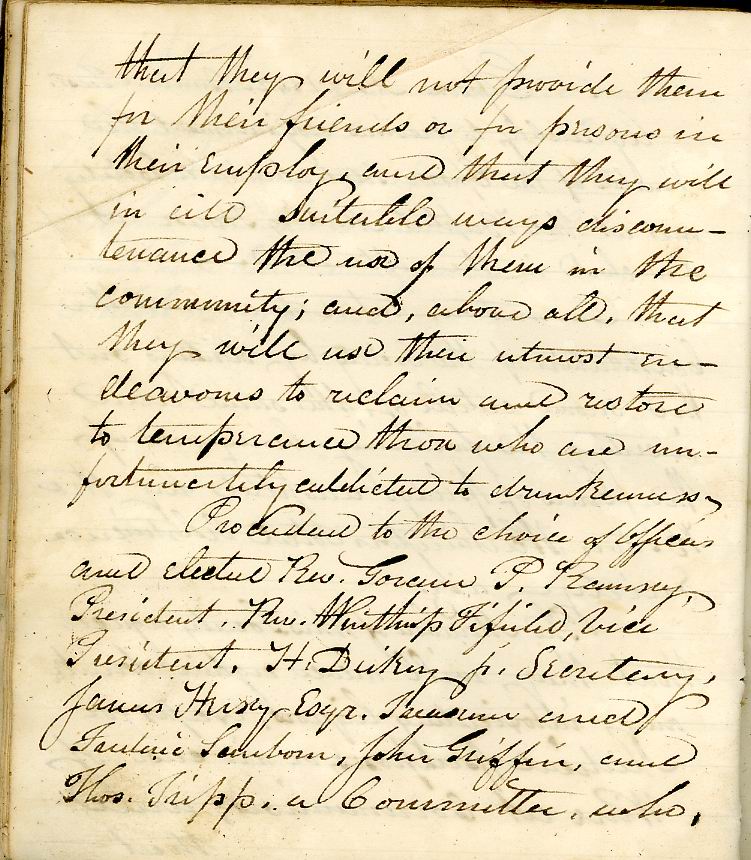 that they will not provide them
for their friends or for persons in
their employ, and that they will
in all suitable ways discoun-
tenance the use of them in the
community; and, above all, that
they will use their utmost en-
deavours to reclaim and restore
to temperance those who are un-
fortunately addicted to drunkenness.
Proceeded to the choice of Officers
and elected Rev. P. Ramsey,
President, Rev. Winthrop Fifield, Vice
President, H. Dickey jr. Secretary,
James Esqr. Treasurer and
Sanborn, John Griffin, and
Thos. Tripp, a Committee, who,